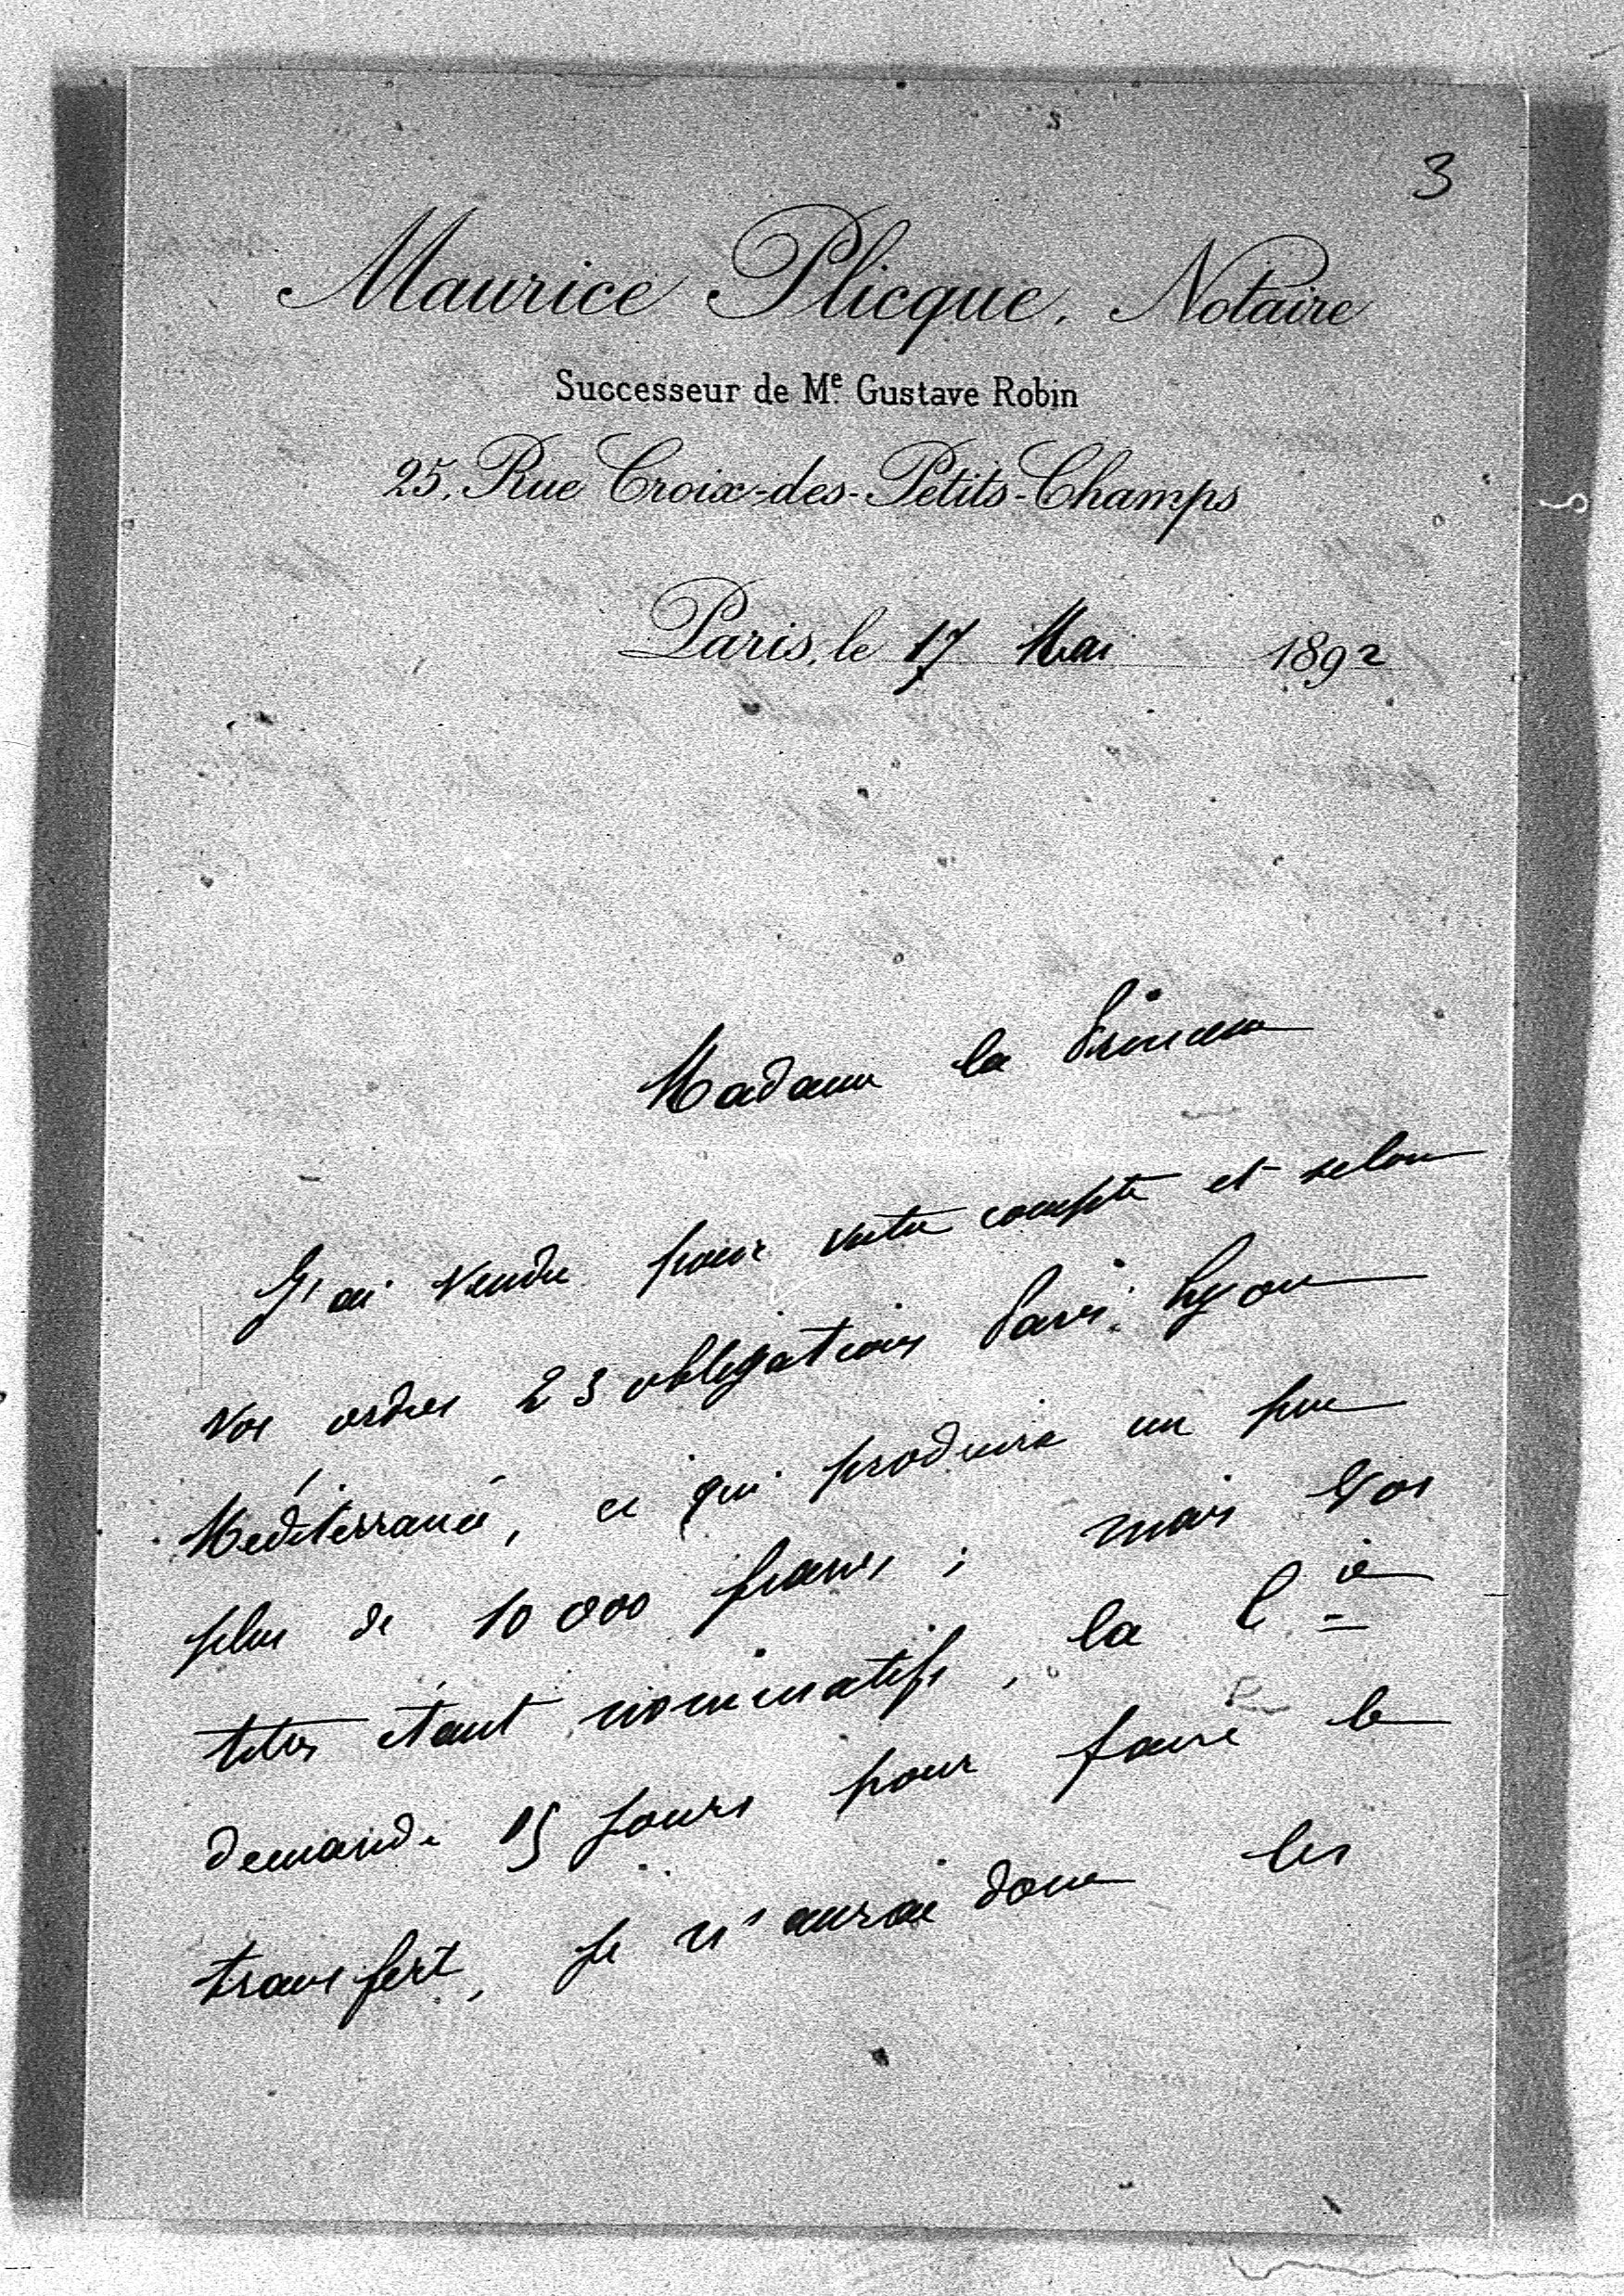 3
Maurice Plicque, Notaire
Successeur de Me. Gustave Robin
25, Rue Croix-des-Petits-Champs
Paris, le 17 Mai 1892
Madame la Princesse
J'ai vendu pour votre compte et selon
vos ordres 23 obligations Paris-Lyon
Méditerranée, ce qui produira un peu
plus de 10 000 francs ; mais vos
titres étant nominatifs, la Cie
demande 15 jours pour faire le
transfert, je n'aurai donc les